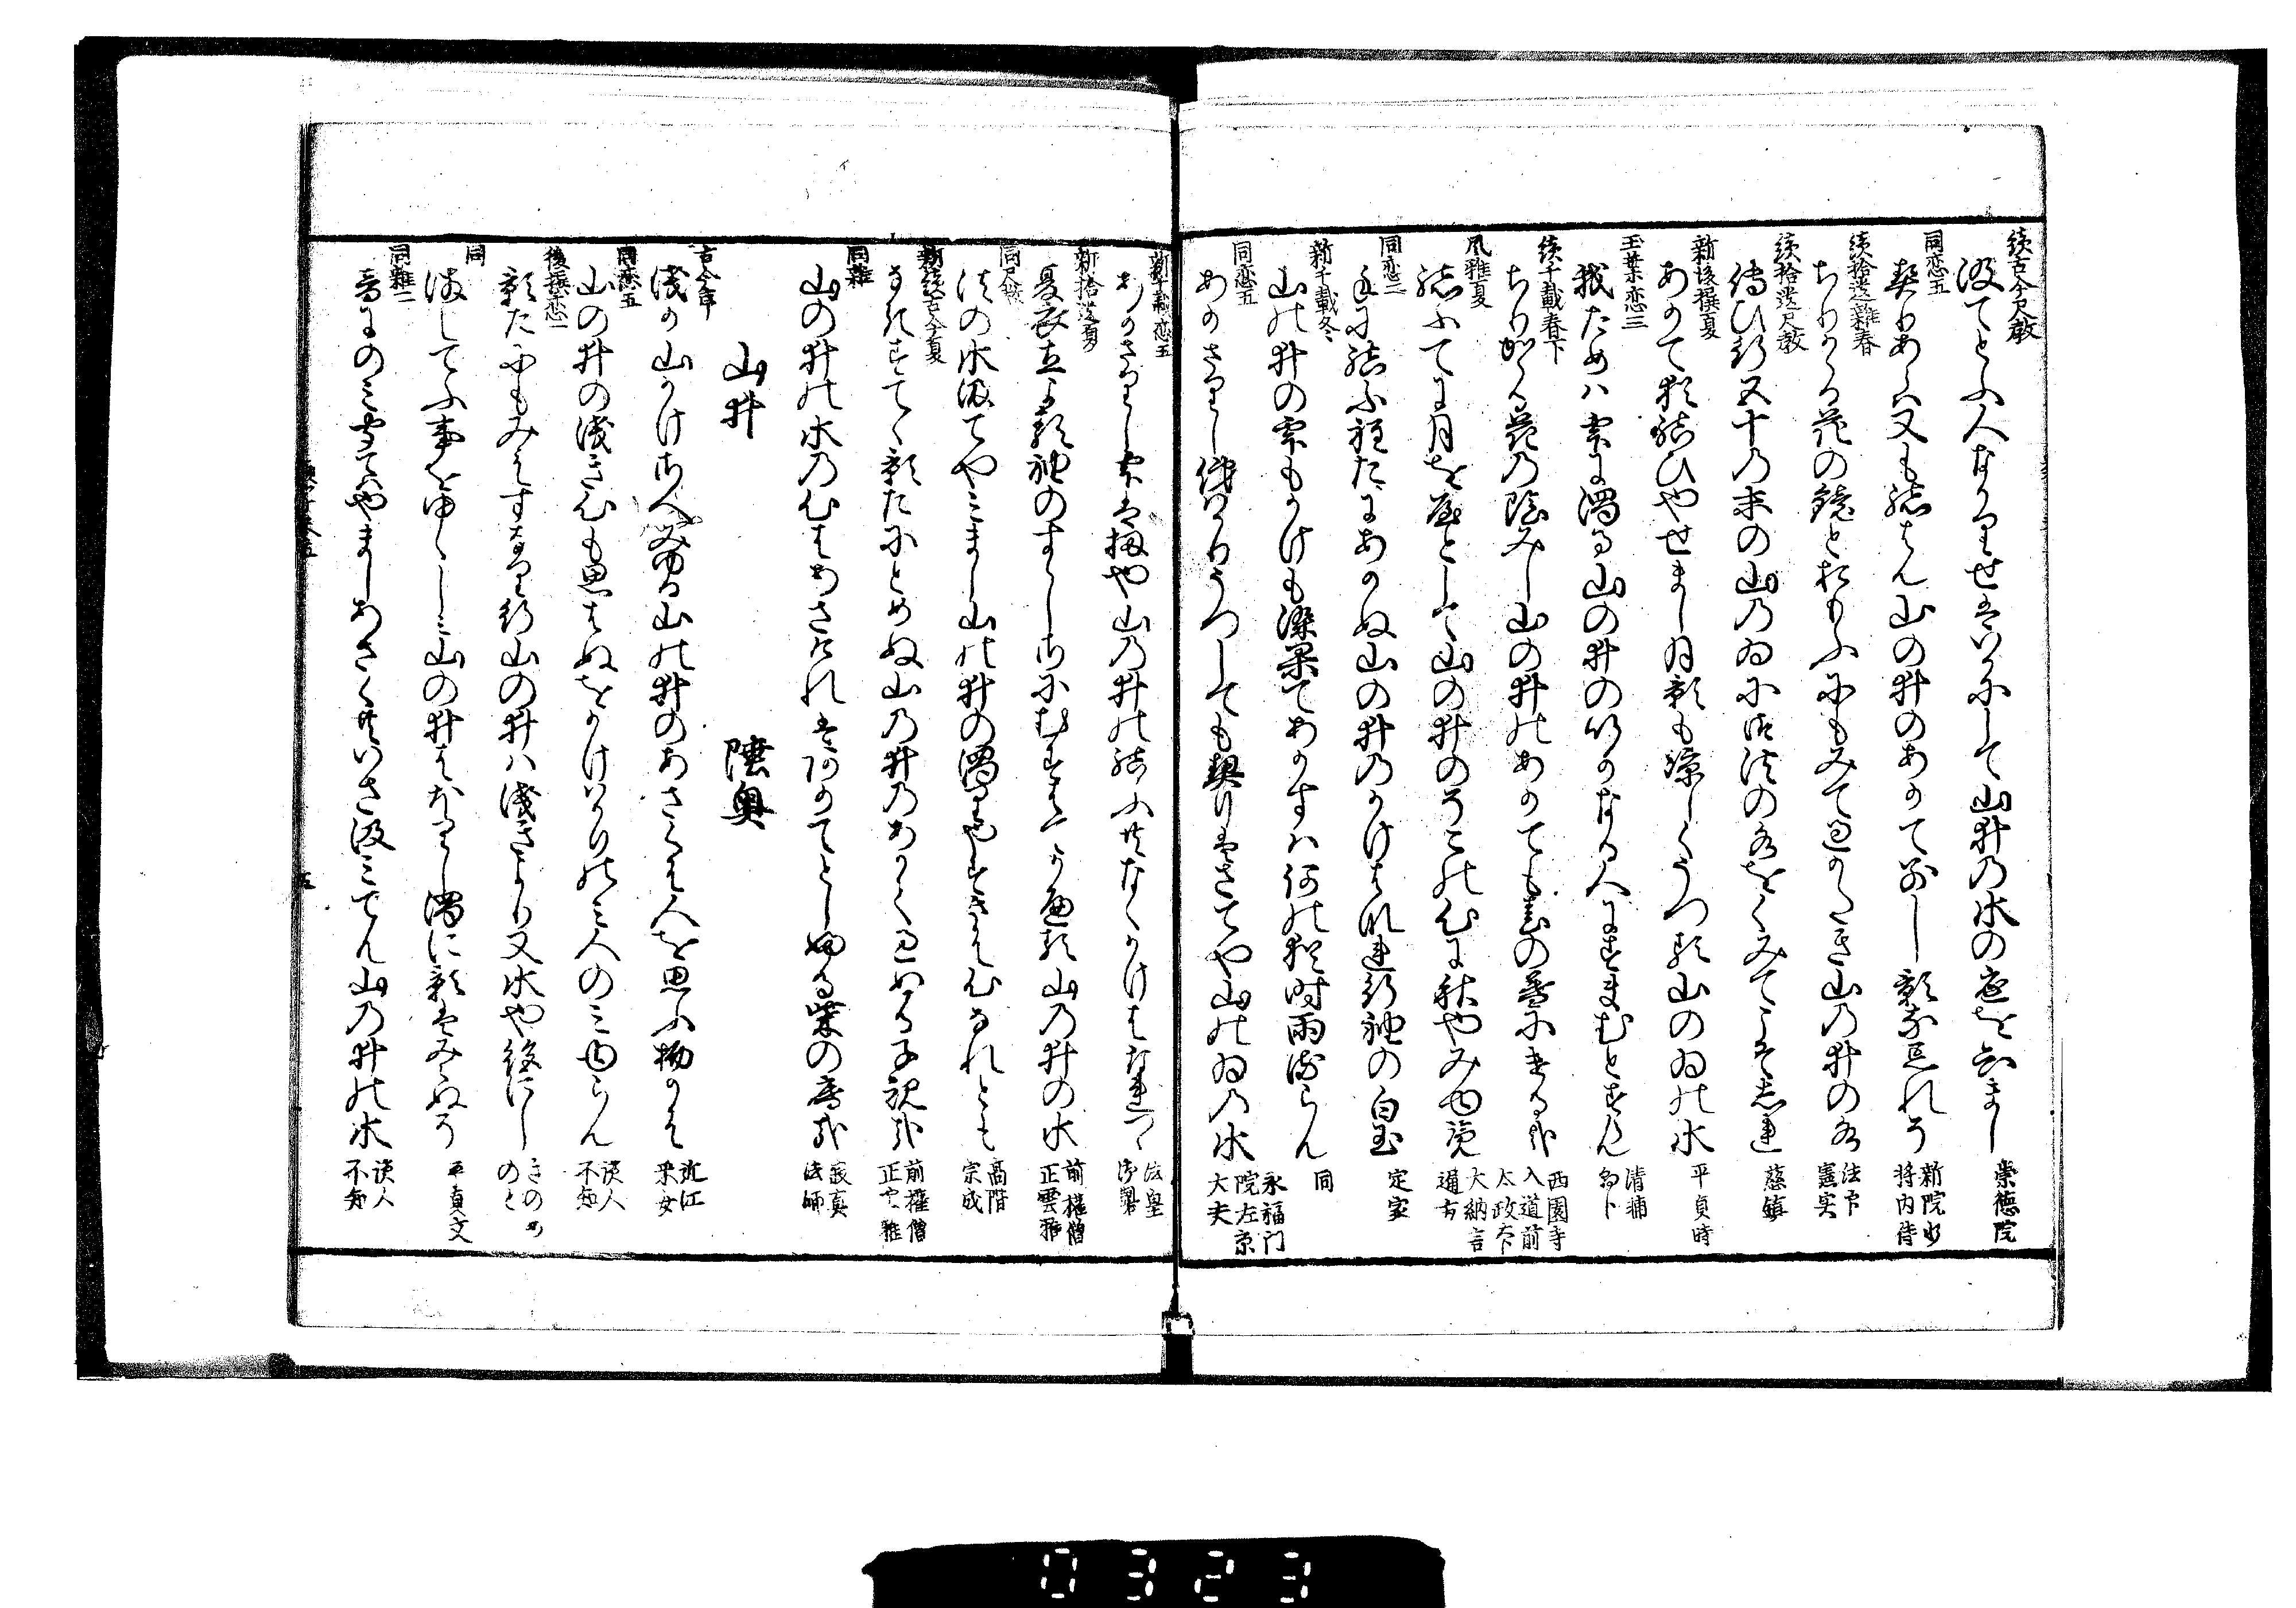 続古今尺教
汲てとふ人なかりせはいかにして山井の水の底をしらまし
崇徳院
同恋五
契りあらは又も結はん山の井のあかて別し影な忘れそ
新院少
将内侍
続拾遺雑春
ちりかゝる花の鏡とおもふにもみて過かたき山の井の水
法印
憲実
続拾遺尺教
伝ひ行五十の末の山のゐに御法の水をくみてこそしれ
慈鎮
新後撰夏
あかて猶結ひやせまし月影も涼しくうつる山のゐの水
平貞時
玉葉恋三
我ためは
濁る山の井のいかなる人にすまむとすらん
清輔
続千載春下
ちりかゝる花の陰みし山の井のあかても春の暮にける哉
西園寺
入道前
太政大
風雅夏
結ふてに月を宿して山の井のそこの心に秋やみゆらん
大納言
通方
同恋二
手に結ふ程たにあかぬ山の井のかけはなれ行袖の白玉
定家
新千載冬
山の井の雫もかけも染果てあかすは何の猶時雨らん
同
同恋五
あかさりし
うつしても契けさてや山のゐの水
永福門
院左京
大夫
新千載恋五
あかさりし
山の井の結ふ
なくかけはなれつゝ
法皇
御製
新拾遺夏
夏衣立よる袖のすゝしさにむすはてかへる山の井の水
前権僧
正雲雅
同尺教
法の水汲てやみまし山の井の濁りやすきは心なれとも
高階
宗成
新続古今夏
なほすてゝ影たにとめぬ山の井のあかく
子規哉
前権僧
正雲雅
同雑
山の井の水の心はあさけれと
とし
る柴の庵哉
寂真
法師
山井　陸奥
古今序
浅か山かけさへみゆる山の井のあさくは人を思ふ物かは
近江
采女
同恋五
山の井の浅き心も思はぬをかけはかりのみ人のみゆらん
読人
不知
後撰恋一
影たにもみえすなり行山の井は浅きより又水や絶にし
きのめ
のと
同
浅してふ事をゆゝしみ山の井はほりし濁に影はみえぬそ
平貞文
同雑二
音にのみ
やましあさくともいさ汲みてん山の井の水
読人
不知
五
0323